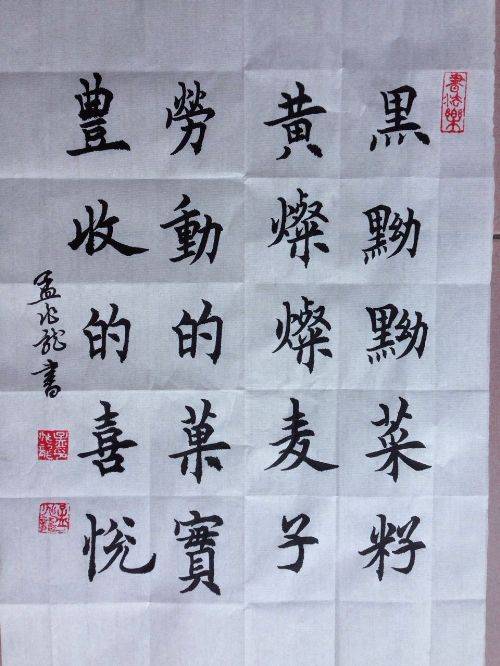 書法樂
黑黝黝菜籽
黄燦燦麦子
勞動的菓實
豊收的喜悦
孟兆龍書